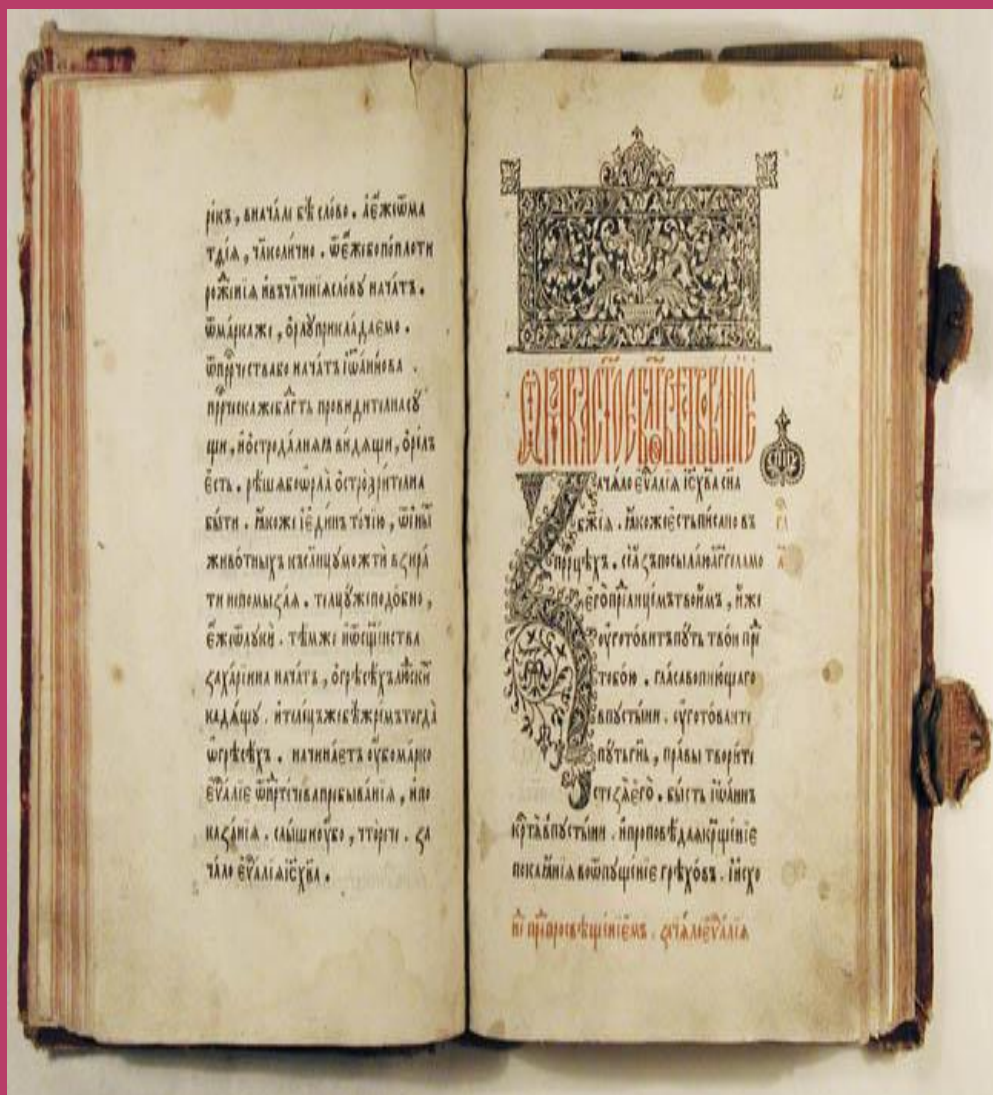 рекъ, вначалѣ бѣ слово. аеже ѿма
тѳея, ꙗко личне. ѿ еже бо по плоти
рожениꙗ ивъчл҃чениꙗ слову начатъ.
ѿ марка же, орлу прикладаемо.
ѿ прⷪ҇рчества бо начатъ iѡаннова.
провидителна су
щи, и остро далняꙗ видящи, орелъ
есть. рѣша бо ѡрла острозрителна
быти. ꙗкоже i единъ точiю, ѿ ины
животныхъ къ слн҃цу можти взира
ти непомизая. телцу же подобно,
еже ѿ луки. тѣмже и ѿ сщ҃енства
захарiина начатъ, о грѣсѣхъ людски
кадящу. и телецъ же бѣ жремъ тогда
ѡ грѣсѣхъ. начинаетъ оубо марко
еѵⷢ҇алiе ѿ прⷣ҇течева пребыванiя, и по
казанiя. слыши оубо, что рече. за
чало еѵⷢ҇алiя iс҃ х҃ва.
ѿ марка ст҃ое бл҃говѣствованiе
Зачало еѵⷢ҇алiя iс҃ х҃ва сн҃а
бж҃iя. ꙗкоже есть писано въ
прⷪ҇рцѣхъ. се азъ посылаю аг҃гела мо
его прⷣ҇ лицемъ твоимъ, иже
оуготовитъ путь твои прⷣе
тобою. гласъ вопиющаго
в пустыни. оуготоваите
путь гнⷭ҇ь, правы творите
стезя его. бысть iѡаннъ
крⷭ҇тя в пустыни. и проповѣдая крщ҃енiе
покаꙗнiя во ѿпущенiе грѣховъ. i исхо
прⷣ҇ просвѣщенiемъ. зачало еѵⷢ҇алiя